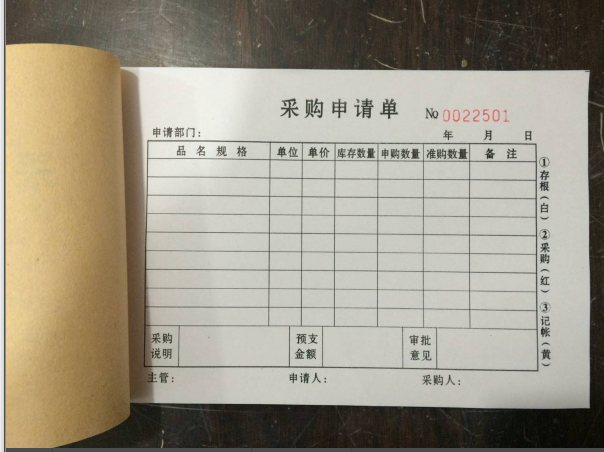 采购申请单 No 0022501
申请部门： 年 月 日
品名规格 单位 单价 库存数量 申购数量 准购数量 备注
采购说明 预支金额 审批意见
主管： 申请人： 采购人：
①存根（白） ②采购（红） ③记帐（黄）